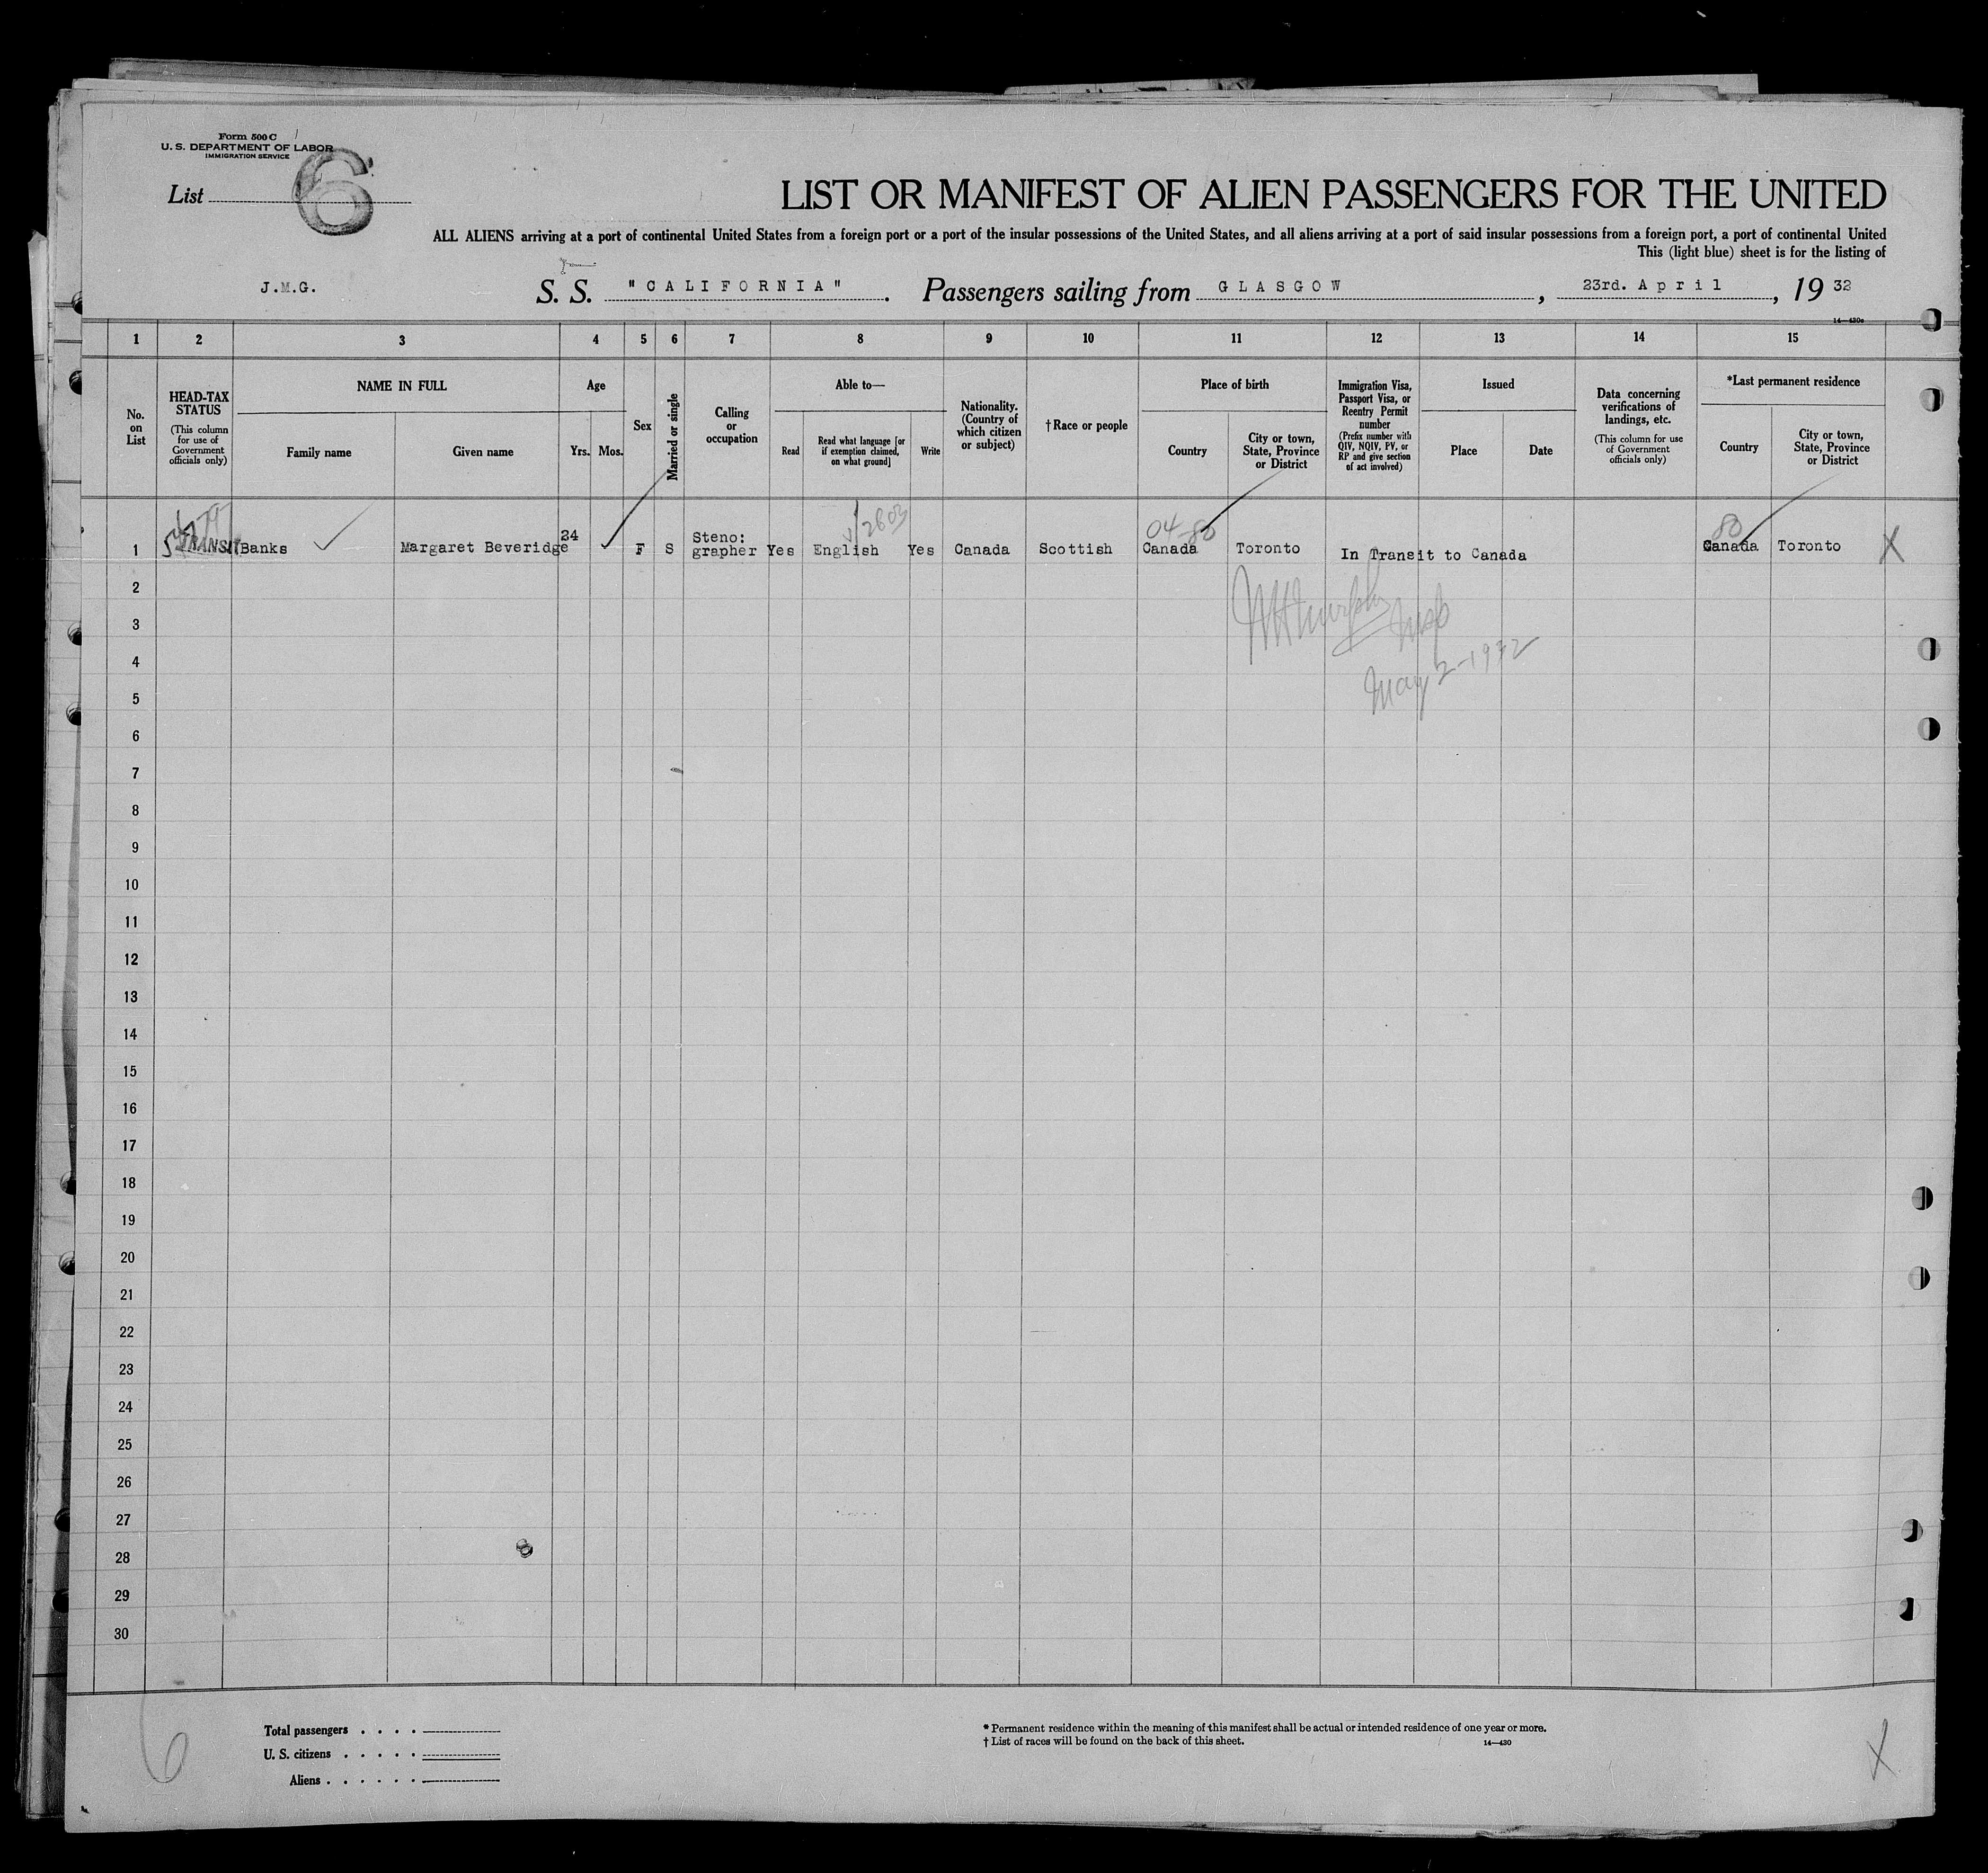 Form 500 C
U. S. DEPARTMENT OF LABOR
IMMIGRATION SERVICE
List 6
LIST OR MANIFEST OF ALIEN PASSENGERS FOR THE UNITED
ALL ALIENS arriving at a port of continental United States from a foreign port or a port of the insular possessions of the United States, and all aliens arriving at a port of said insular possessions from a foreign port, a port of continental United
This (light blue) sheet is for the listing of
J.M.G. S. S. "CALIFORNIA". Passengers sailing from GLASGOW, 23rd. April, 19 32
14—430a
1 2 3 4 5 6 7 8 9 10 11 12 13 14 15
No. on List
HEAD-TAX STATUS
(This column for use of Government officials only)
NAME IN FULL
Family name
Given name
Age
Yrs.
Mos.
Sex
Married or single
Calling or occupation
Able to—
Read
Read what language [or if exemption claimed, on what ground]
Write
Nationality. (Country of which citizen or subject)
†Race or people
Place of birth
Country
City or town, State, Province or District
Immigration Visa, Passport Visa, or Reentry Permit number
(Prefix number with QIV, NQIV, PV, or RP and give section of act involved)
Issued
Place
Date
Data concerning verifications of landings, etc.
(This column for use of Government officials only)
*Last permanent residence
Country
City or town, State, Province or District
04-80
80
1 TRANSIT Banks Margaret Beveridge 24 F S Steno: grapher Yes English Yes Canada Scottish Canada Toronto In Transit to Canada Canada Toronto X
2
3
4
May 2-1932
5
6
7
8
9
10
11
12
13
14
15
16
17
18
19
20
21
22
23
24
25
26
27
28
29
30
6
Total passengers . . . .
U. S. citizens . . . . .
Aliens . . . . . .
* Permanent residence within the meaning of this manifest shall be actual or intended residence of one year or more.
† List of races will be found on the back of this sheet.
14—430
X